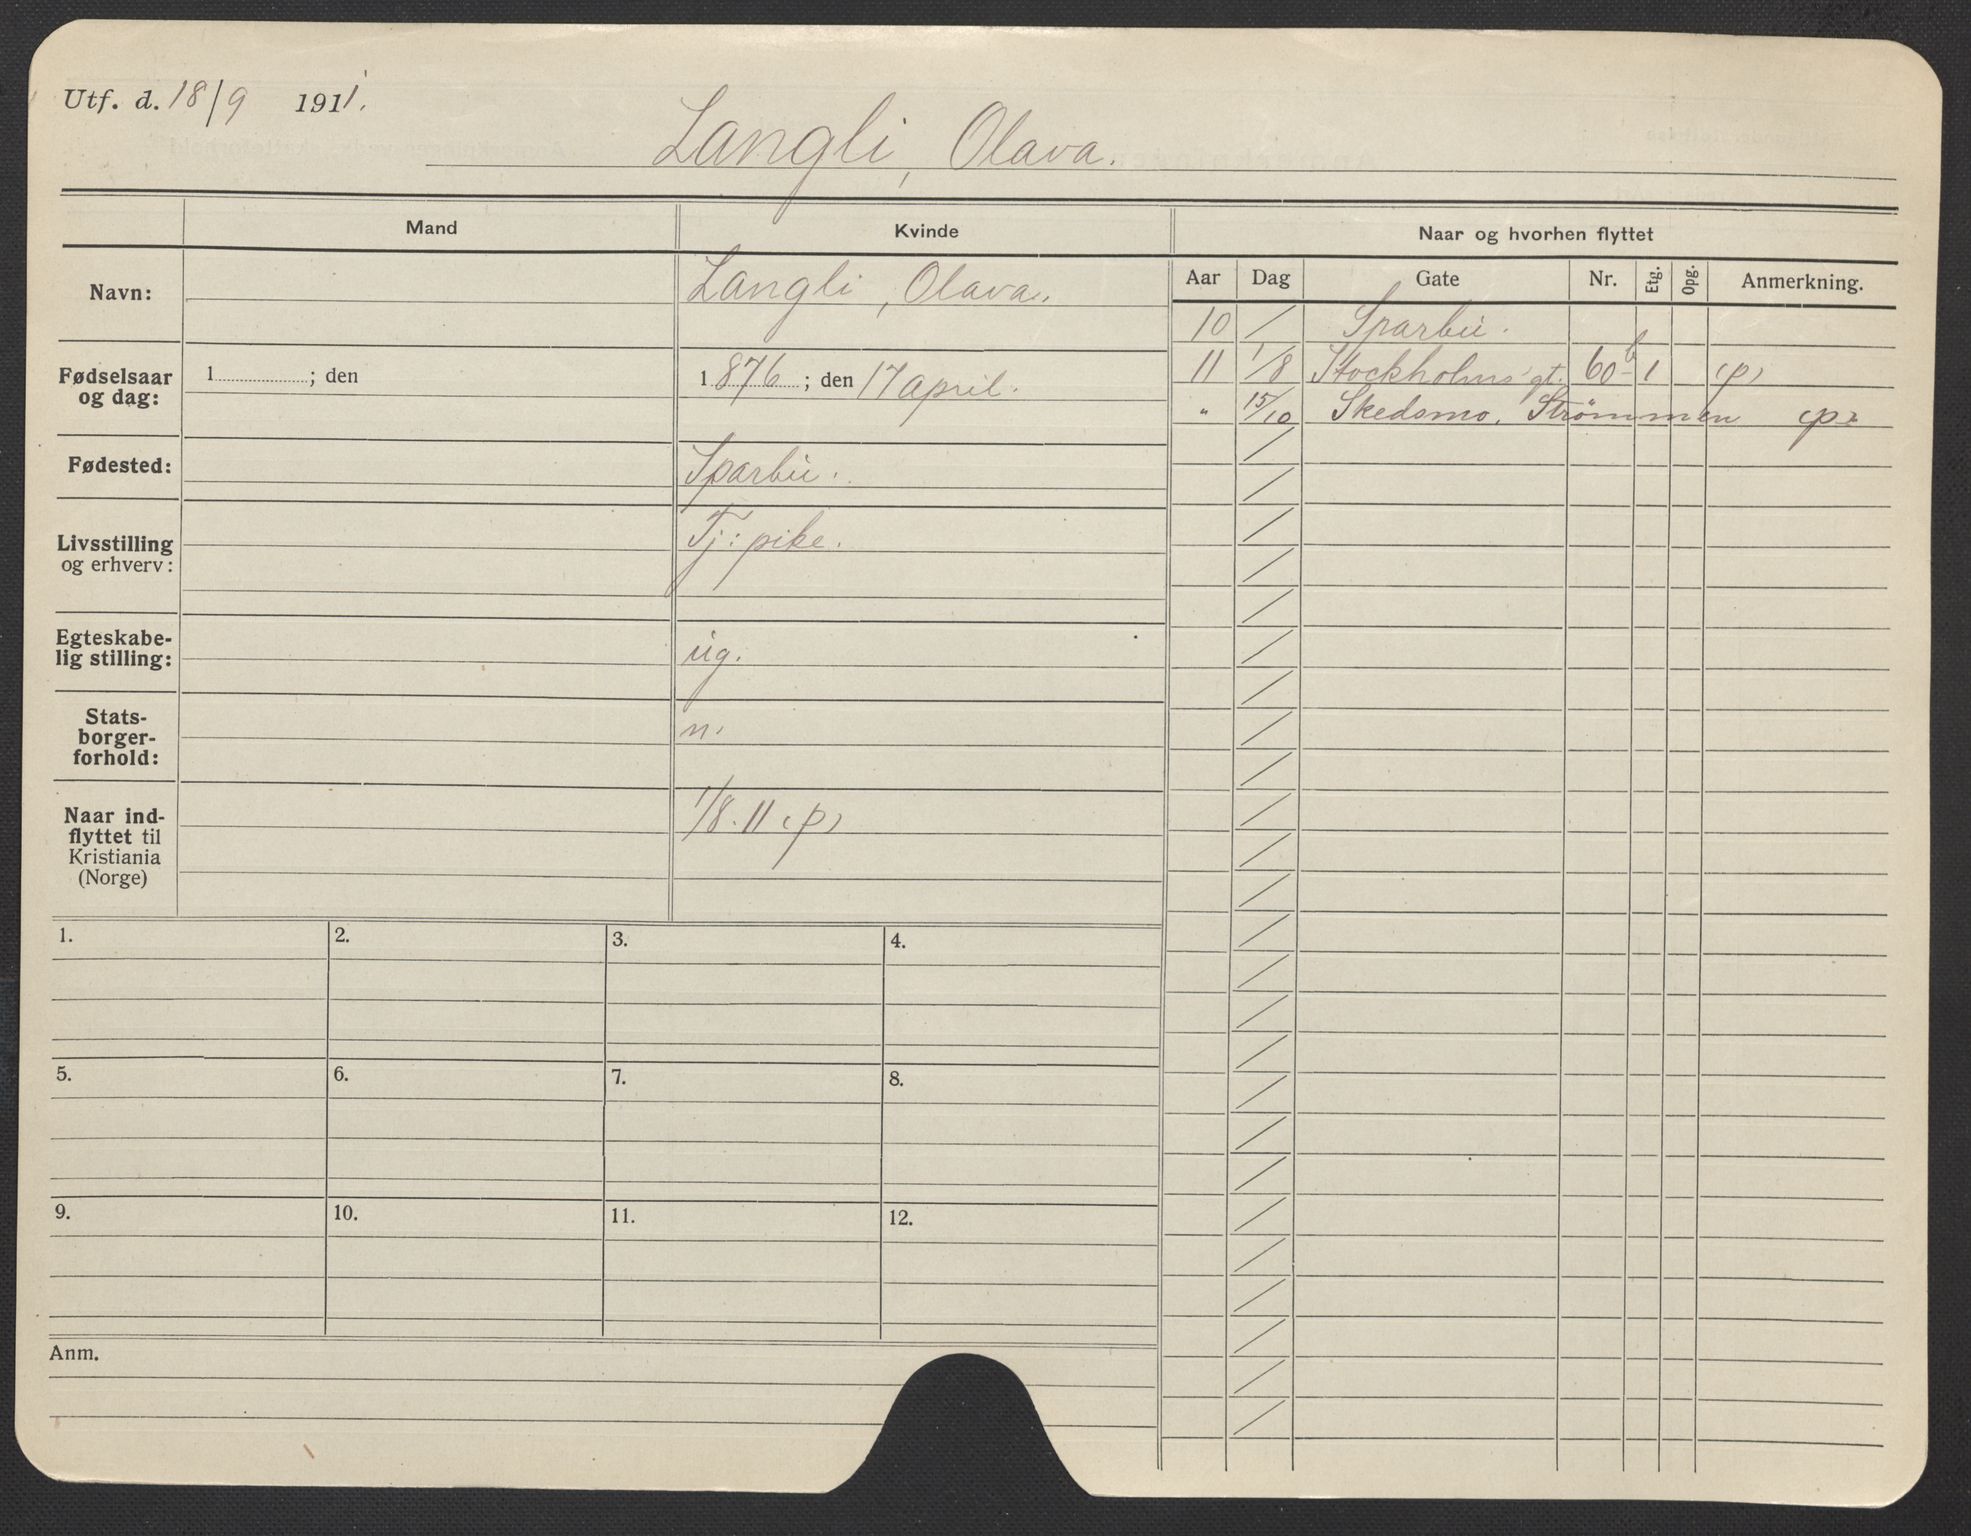 Utf. d. 18/9 1911.
Langli, Olava.
Mand
Kvinde
Naar og hvorhen flyttet
Aar Dag Gate Nr. Etg. Opg. Anmerkning.
Navn:
Langli, Olava.
Fødselsaar
og dag:
1 ; den
1876 ; den 17 april.
Fødested:
Sparbu.
Livsstilling
og erhverv:
Tj: pike.
Egteskabe-
lig stilling:
ug.
Stats-
borger-
forhold:
n.
Naar ind-
flyttet til
Kristiania
(Norge)
1/8. 11 (p)
10 / Sparbu.
11 1/8 Stockholms gt. 60 b 1 (p)
" 15/10 Skedsmo, Strømmen (p)
1. 2. 3. 4.
5. 6. 7. 8.
9. 10. 11. 12.
Anm.